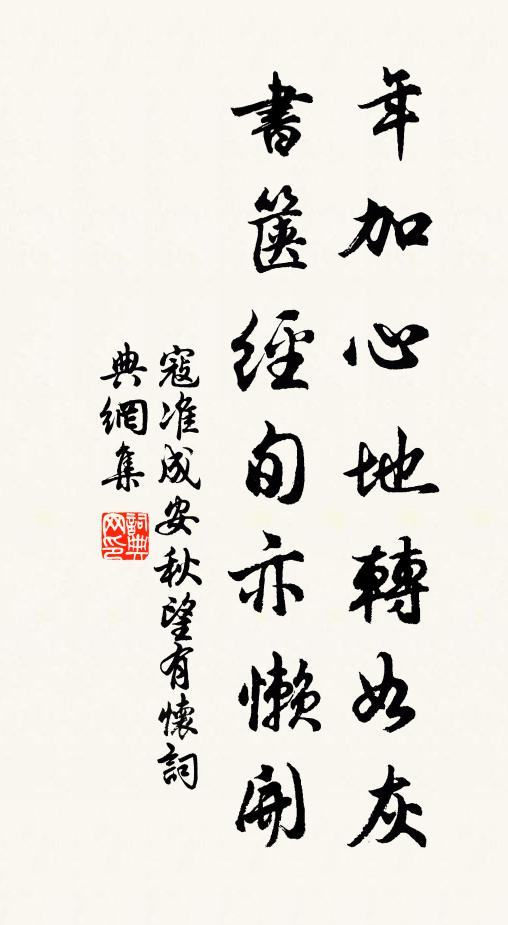 年加心地轉如灰
書篋經旬亦懶開
寇准成安秋望有懷詞
典網集
詞典
网印